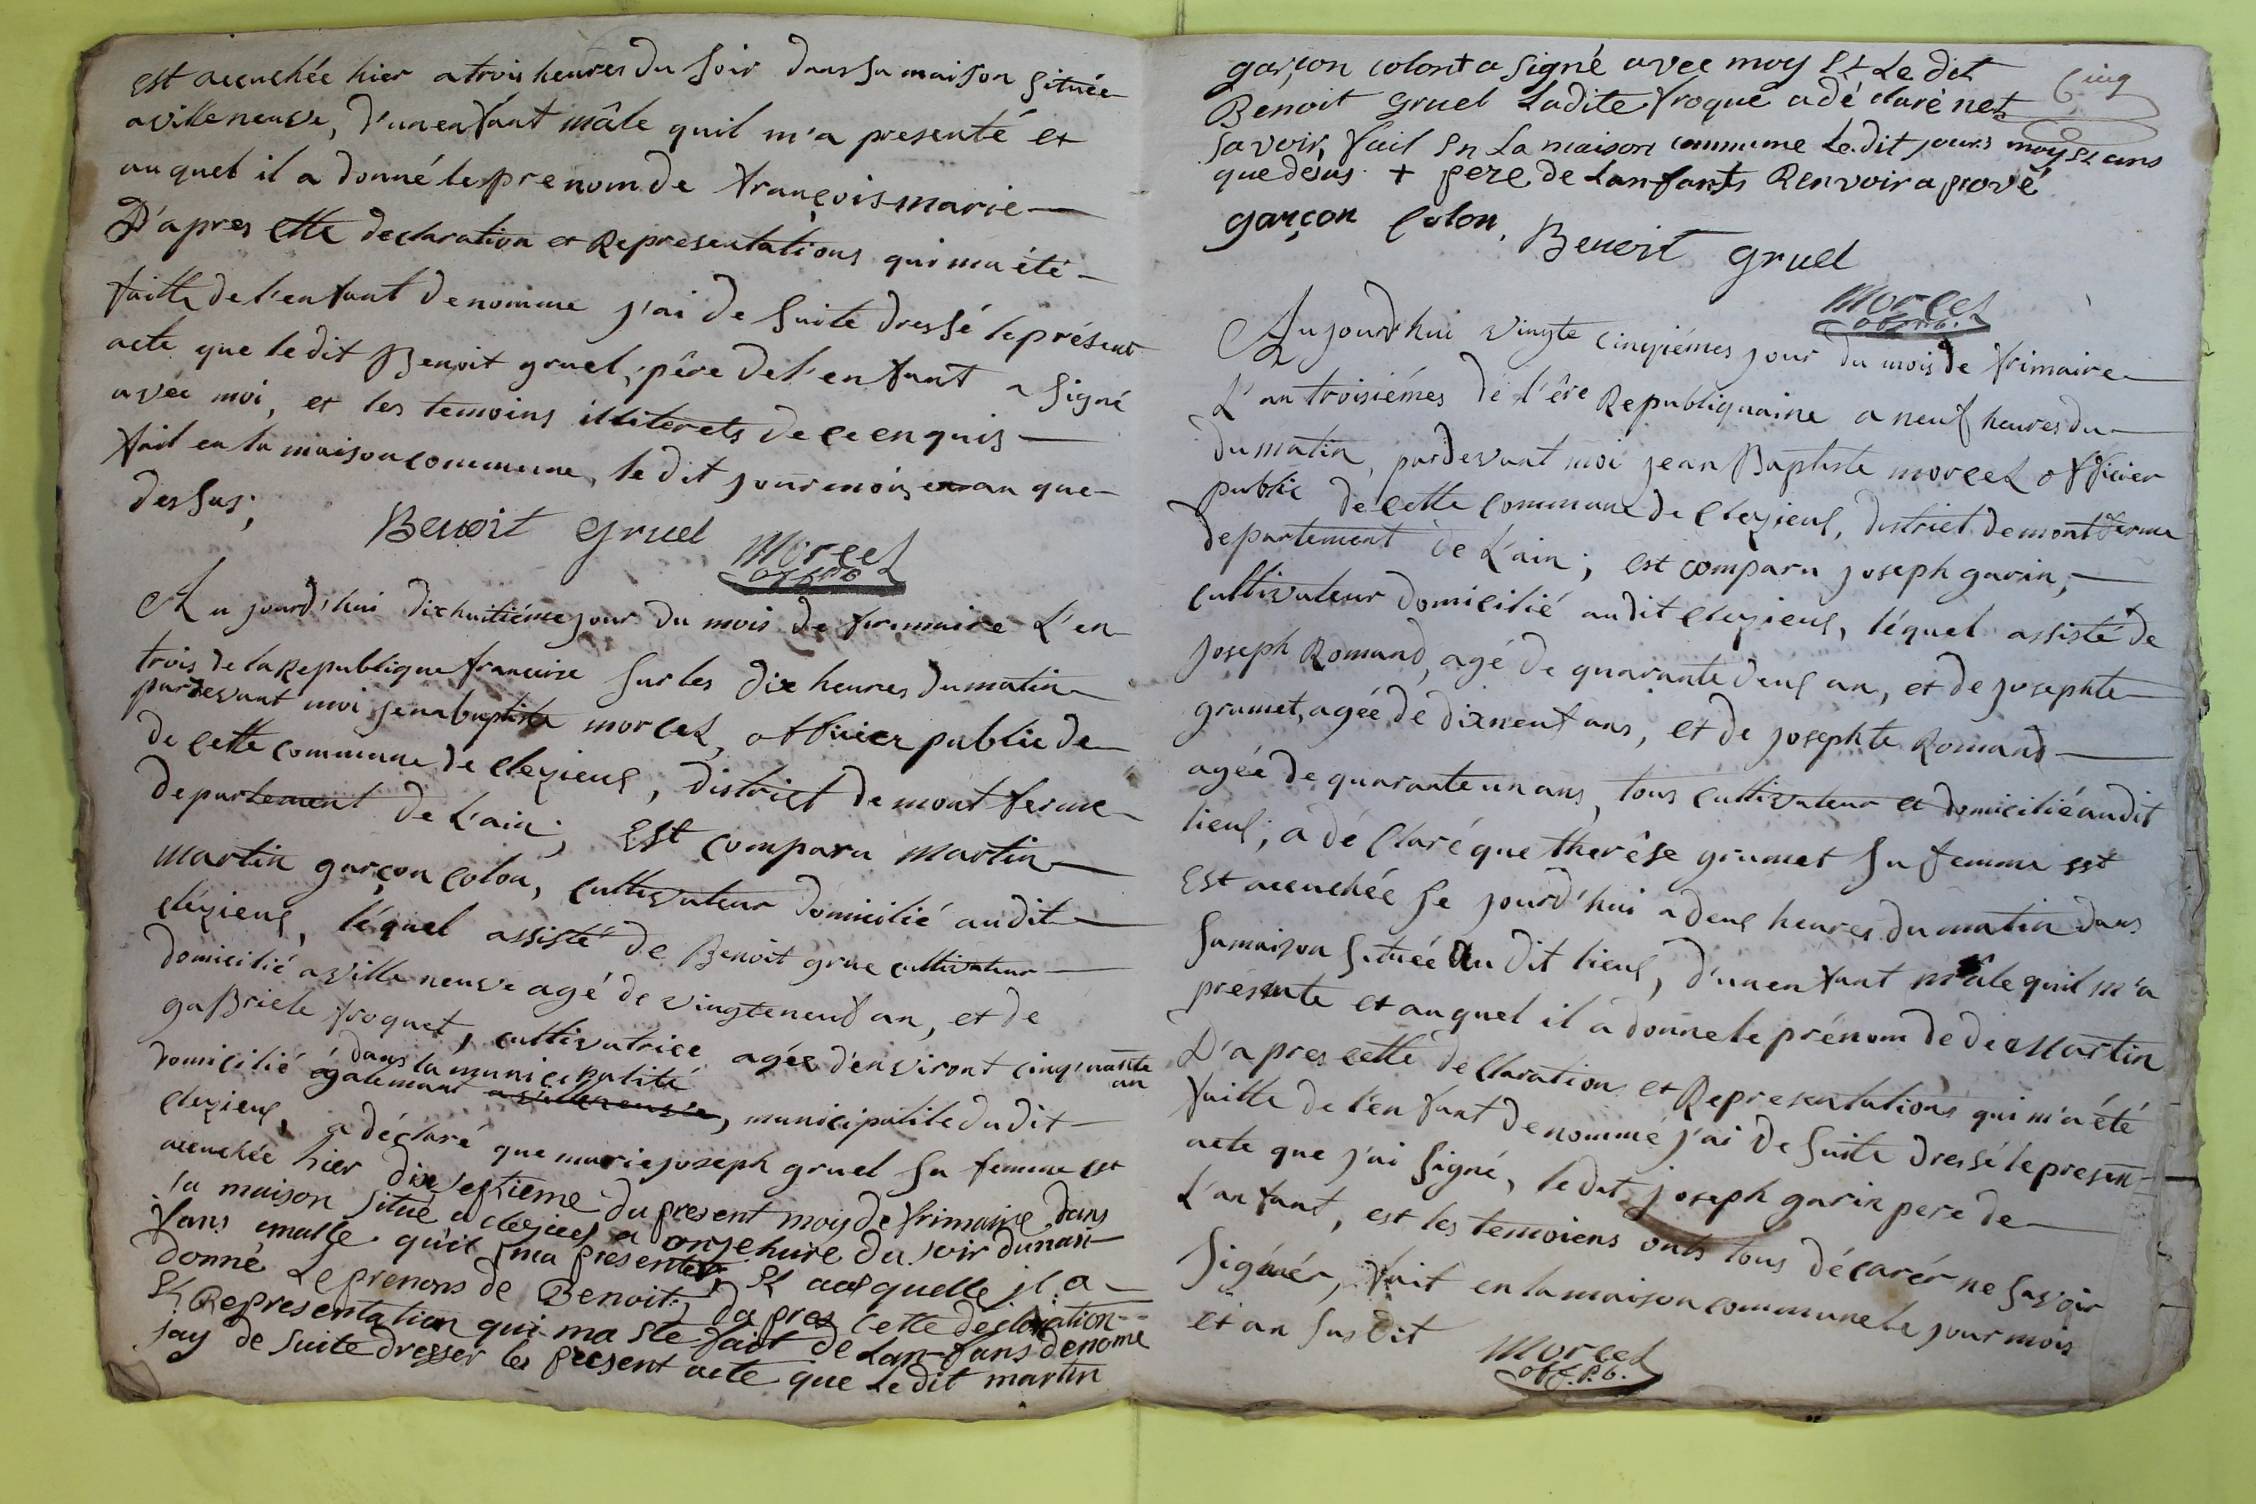 est accuchée hier a trois heures du soir dans sa maison située
a villeneuve, d'un enfant mâle quil m'a presenté et
au quel il a donné le prenom de françois marie
D'apres cette declaration et Representations qui ma été
faitte de l'enfant denomme j'ai de suite dressé le présent
acte que le dit Benoit gruel, pêre de l'enfant a signé
avec moi, et les temoins illiterets de ce enquis
fait en la maison commune, le dit jour mois, en an que
dessus;
Benoit Gruel
Morcel
off pb
Aujourd'hui dixhuitiéme jour du mois de frimaire L'en
trois de la Republique francoise sur les dix heures du matin
pardevant moi jean baptiste morcel, officier public de
de cette commune de cleyzieus, district de mont ferme
departement de L'ain; Est comparu Martin
martin garçon colon, cultivateur domicilié audit
cleyzieus, léquel assisté de Benoit grue cultivateur
domicilié a ville neuve agé de vingteneuf an, et de
gabriele froquet, cultivatrice agée d'environt cinquante
an
dans la municipalité
domicilié égalemant a villeneuve, municipalite dudit
cleyzieus, a déclaré que marie joseph gruel sa femme est
accuchée hier dix septieme du present mois de frimaire dans
sa maison situé a cleyzieus a onzeheure du soir dunan
fans malle quil ma presenter, et au quelle jl a
donné Le prenons de Benoit; dapres cette declaration
Et Representation qui ma ete fait de Lan-fans denome
jay de suite dresser les present acte que Le dit martin
Cinq
garçon colont a signé avec moy Et Le dit
Benoit Gruel Ladite froque a dé claré net
savoir, fait En La maison commune Ledit jours moy Et ans
que desus + pere de Lanfants Renvoir aprové
garçon Colon, Benoit Gruel
Morcel
off pb.
Aujourd'hui vingte cinqiémes jour du mois de frimaire
L'an troisiémes de l'êre Republiquaine a neuf heures du
du matin, pardevant moi jean Baptiste morcel officier
public de cette commune de Cleyzieus, district de mont ferme
departement de L'ain; est comparu joseph garin,
cultivateur domicilié audit cleyzieus, léquel assisté de
joseph Romand, agé de quarante deus an, et de josephte
grumet, agée de dixneuf ans, et de josephte Romand
agée de quarante un ans, tous cultivateur et domicilié audit
lieus; a dé claré que therêse grumet sa femme est
Est accuchée se jourd'hui a deus heures du matin dans
sa maison située au dit lieus, d'un enfant mâle quil m'a
presente et au quel il a donne le prénom de de Martin
D'apres cette declaration et Representations qui m'a été
faitte de l'enfant denommé j'ai de suite dressé le presen
acte que j'ai signé, le dit joseph garin pere de
L'anfant, est les temoiens onts tous décarér ne savoir
signér, fait en la maison commune le jour mois
et an susdit
Morcel
off. p.b.